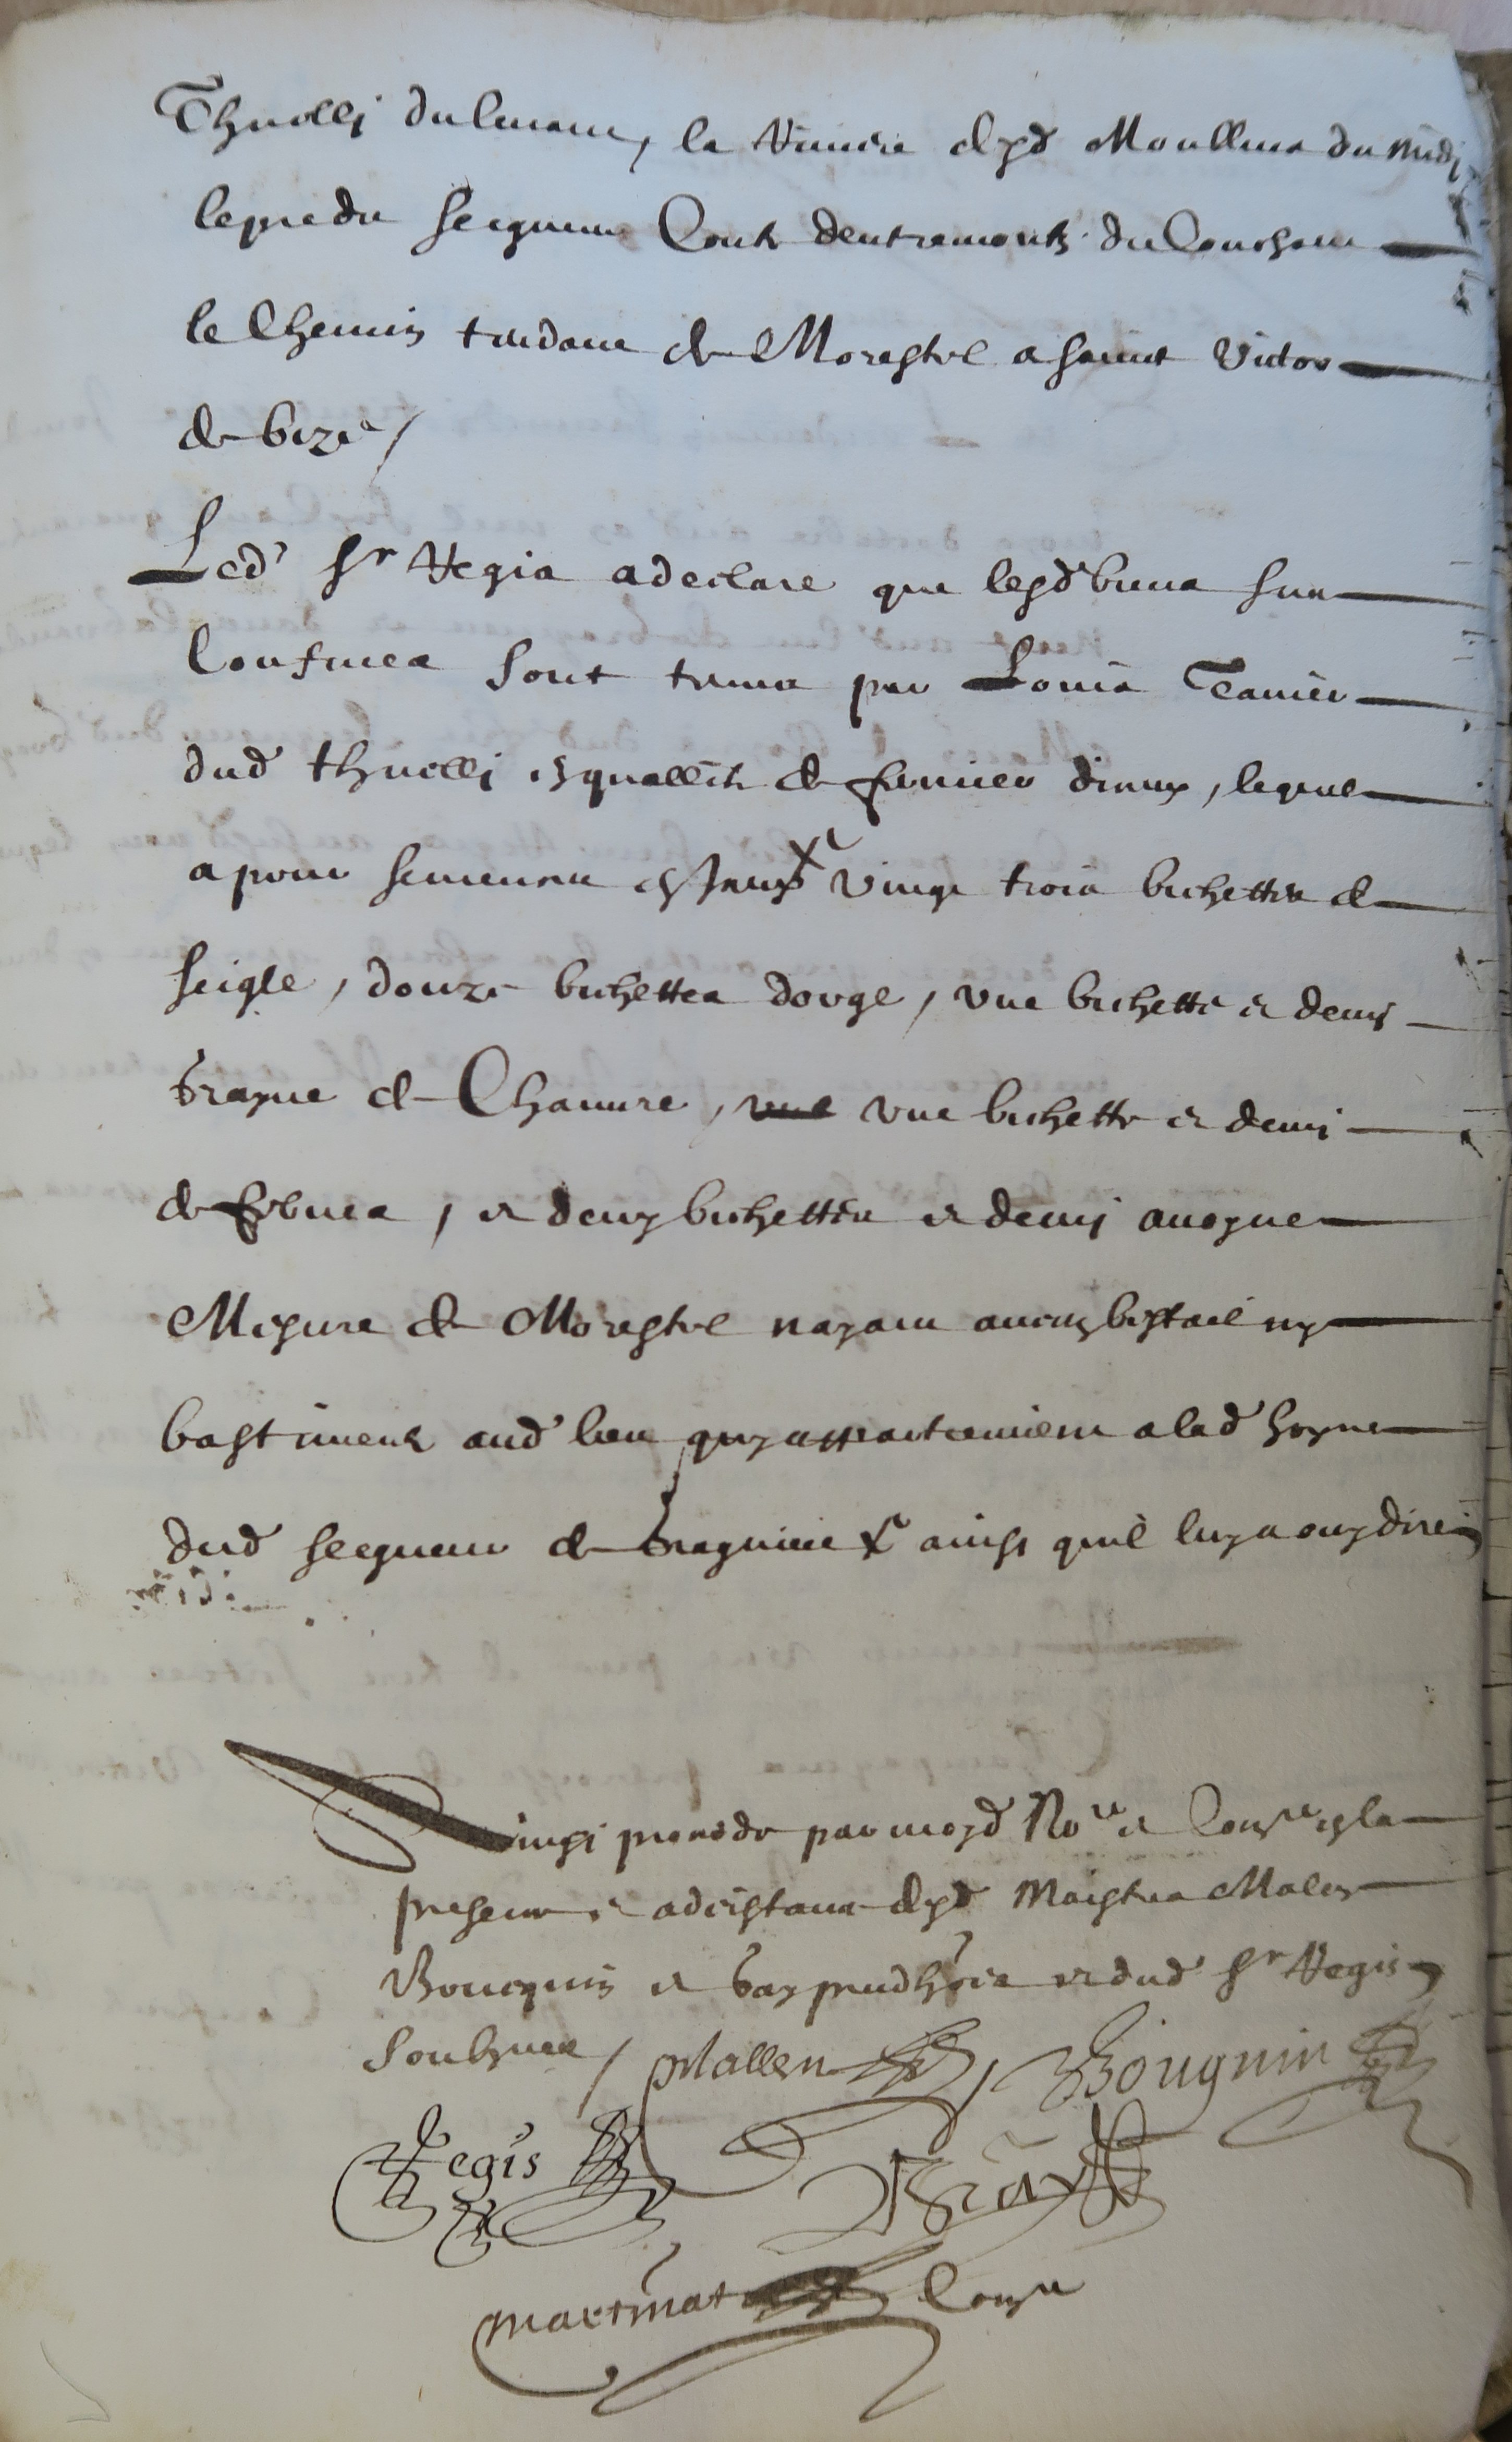 Thuelli du levant, la riviere desd Moullins du midy
le pre du seigneur Conte dentremonts du Couchant
le Chemin tendant de Morestel a saint Victor
de bize /
Led' Sr Regis a declare que lesd biens sus
Confines sont tenus par Louis
dud thuelli en quallite de fermier dieux, lequel
a pour semences vingt trois bichettes de
seigle, douze bichettes dorge, une bichette et demy
de Chanvre, une bichette et demi
de febves, et deux bichettes et demy avoyne
Mesure de Morestel nayant aucung bestail ny
bastiment aud lieu quy appartiennent a lad hoyrie
dud seigneur de ainsi quil luy a ouy dire
Ainsi procede par moyd No.re et Con.re en la
presence et adcistance desd Maistres Mallen
Boucquin et Bray prudhoes et dud Sr Regis
soubsnes / Mallen Bouquin
Regis Bray
martinat Con.re